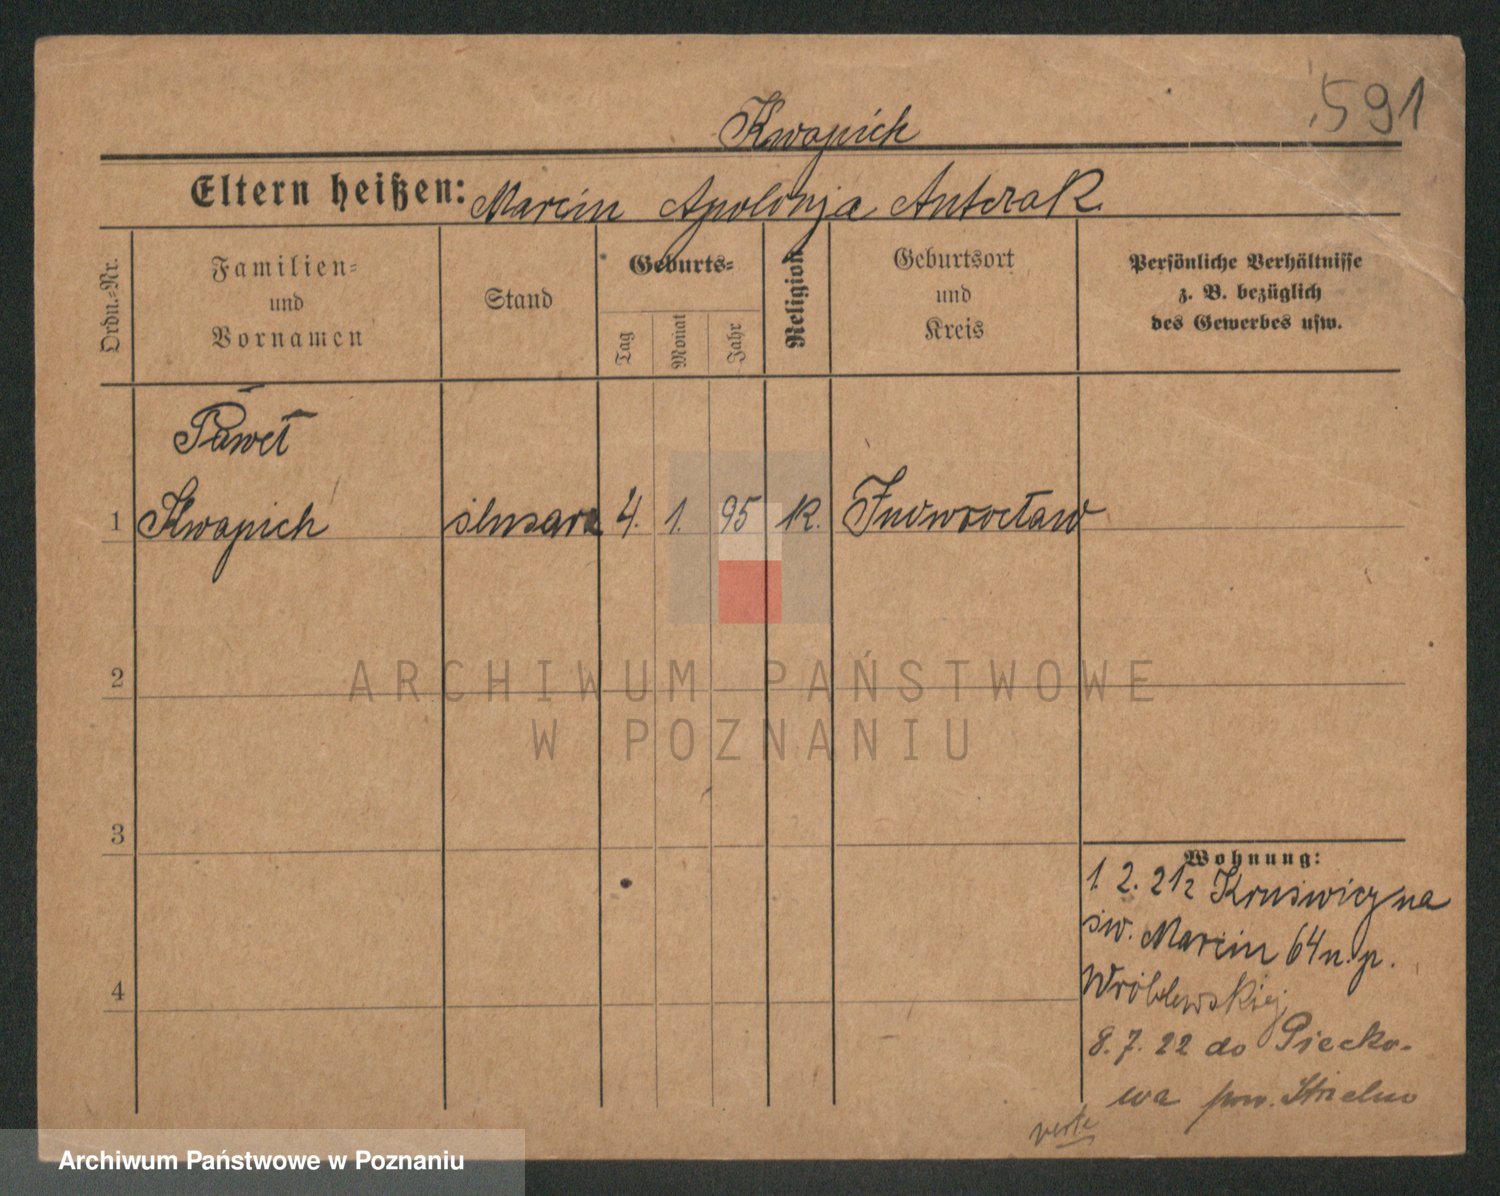 591
Kwapich
Eltern heißen: Marcin Apolonja Antczak
Ordn.-Nr.
Familien=
und
Vornamen
Stand
Geburts=
Tag
Monat
Jahr
Religion
Geburtsort
und
Kreis
Persönliche Verhältnisse
z. B. bezüglich
des Gewerbes usw.
Paweł
1 Kwapich ślusarz 4. 1. 95 k. Inowrocław
2
3
4
Wohnung:
1. 2. 21 z Kruświcy na
św. Marcin 64 u. p.
Wróblewskiej
8. 7. 22 do Piecko-
wa pow. Strzelno
ARCHIWUM PAŃSTWOWE
W POZNANIU
Archiwum Państwowe w Poznaniu